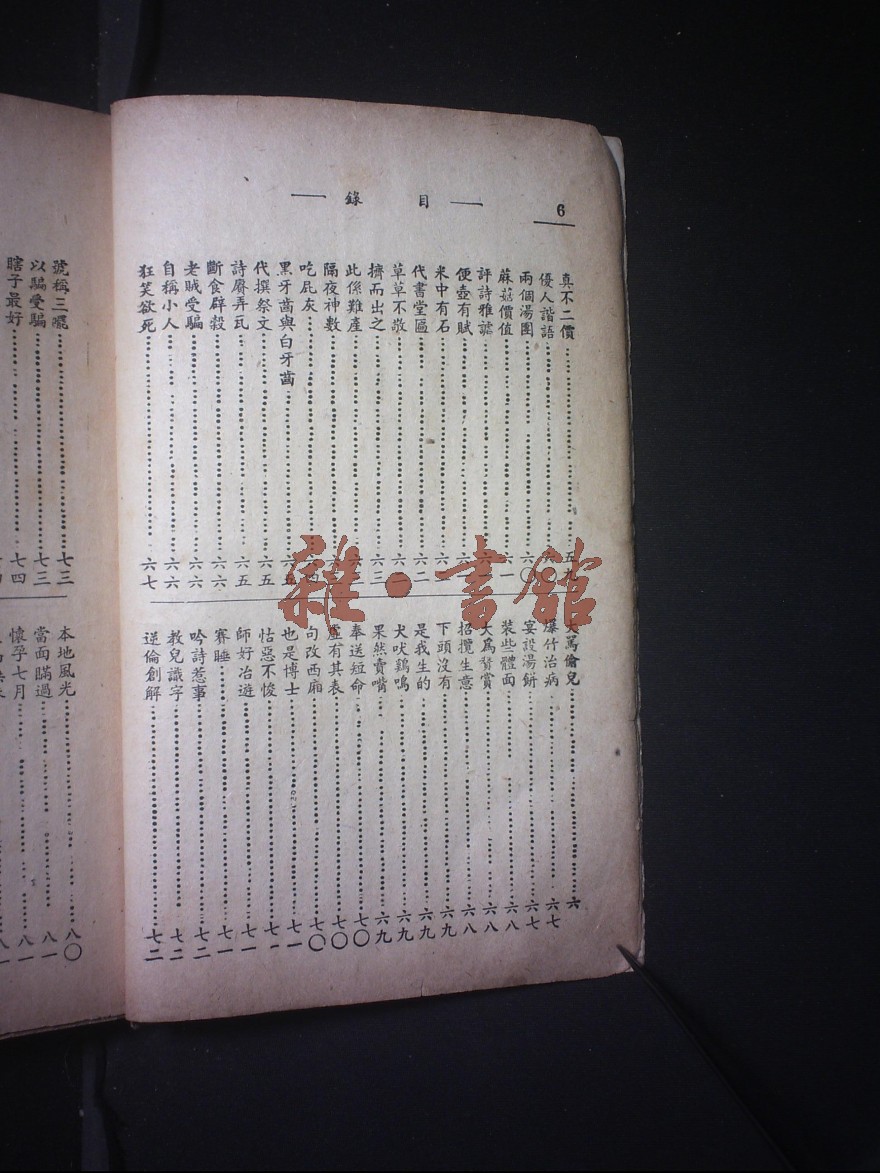 6
目錄
真不二價 五九
優人諧語 六〇
兩個湯圓 六〇
蔴菇價值 六一
評詩雅謔 六一
便壺有賦
米中有石 六二
代書堂匾 六二
草草不敬
擠而出之 六三
此係難產
隔夜神數
吃屁灰 六四
黑牙齒與白牙齒 六五
代撰祭文 六五
詩賡弄瓦 六五
斷食辟穀 六六
老賊受騙 六六
自稱小人 六六
狂笑欲死 六七
大罵偷兒 六
爆竹治病 六七
宴設湯餅 六七
裝些體面 六八
大爲發賞 六八
招攬生意 六八
下頭沒有 六九
是我生的 六九
犬吠鷄鳴 六九
果然賣嘴 六九
奉送短命 七〇
虛有其表 七〇
句改西廂 七〇
也是博士 七一
怙惡不悛 七一
師好冶遊 七一
賽睡 七一
吟詩惹事 七二
教兒識字 七二
逆倫創解 七二
號稱三癡 七三
以騙受騙 七三
瞎子最好 七四
本地風光 八〇
當面瞞過 八一
懷孕七月 八一
雜·書館